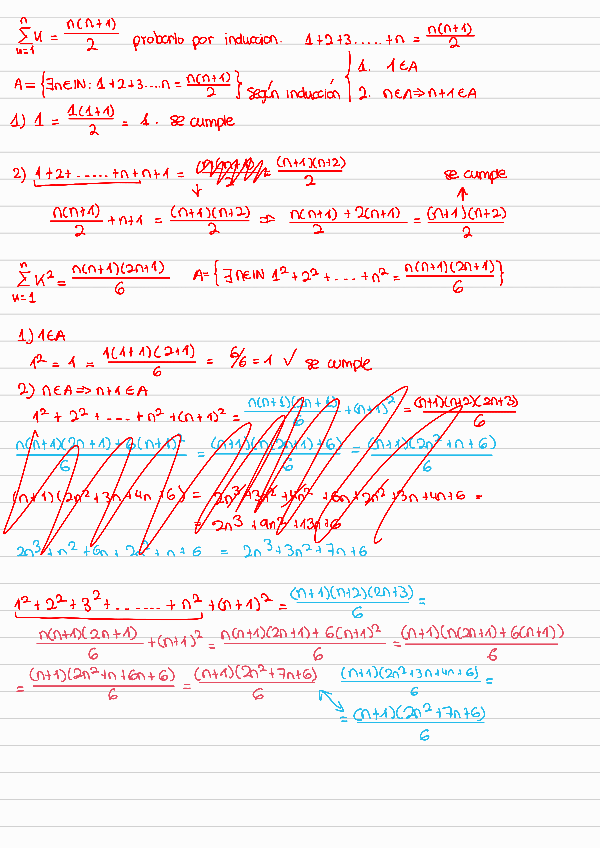 n
∑ k = n(n+1)/2 probarlo por induccion. 1+2+3.....+n = n(n+1)/2
k=1
A={∃n∈IN: 1+2+3...n = n(n+1)/2} según inducción { 1. 1∈A
2. n∈A⇒n+1∈A
1) 1 = 1(1+1)/2 = 1. se cumple
2) 1+2+......+n+n+1 = = (n+1)(n+2)/2 se cumple
↓ ↑
n(n+1)/2 + n+1 = (n+1)(n+2)/2 ⇒ n(n+1)+2(n+1)/2 = (n+1)(n+2)/2
n
∑ k² = n(n+1)(2n+1)/6 A={∃n∈IN 1²+2²+...+n² = n(n+1)(2n+1)/6}
k=1
1) 1∈A
1² = 1 = 1(1+1)(2+1)/6 = 6/6 = 1 ✓ se cumple
2) n∈A⇒n+1∈A
1²+2²+....+n²+(n+1)² = n(n+1)(2n+1)/6 +(n+1)² = (n+1)(n+2)(2n+3)/6
n(n+1)(2n+1)+6(n+1)²/6 = (n+1)(n(2n+1)+6)/6 = (n+1)(2n²+n+6)/6
(n+1)(2n²+3n+4n+6) = 2n³+3n²+4n²+6n+2n²+3n+4n+6 =
= 2n³+9n²+13n+6
2n³+n²+6n+2n²+n+6 = 2n³+3n²+7n+6
1²+2²+3²+.......+n²+(n+1)² = (n+1)(n+2)(2n+3)/6 =
n(n+1)(2n+1)/6 +(n+1)² = n(n+1)(2n+1)+6(n+1)²/6 = (n+1)(n(2n+1)+6(n+1))/6
= (n+1)(2n²+n+6n+6)/6 = (n+1)(2n²+7n+6)/6 (n+1)(2n²+3n+4n+6)/6 =
= (n+1)(2n²+7n+6)/6